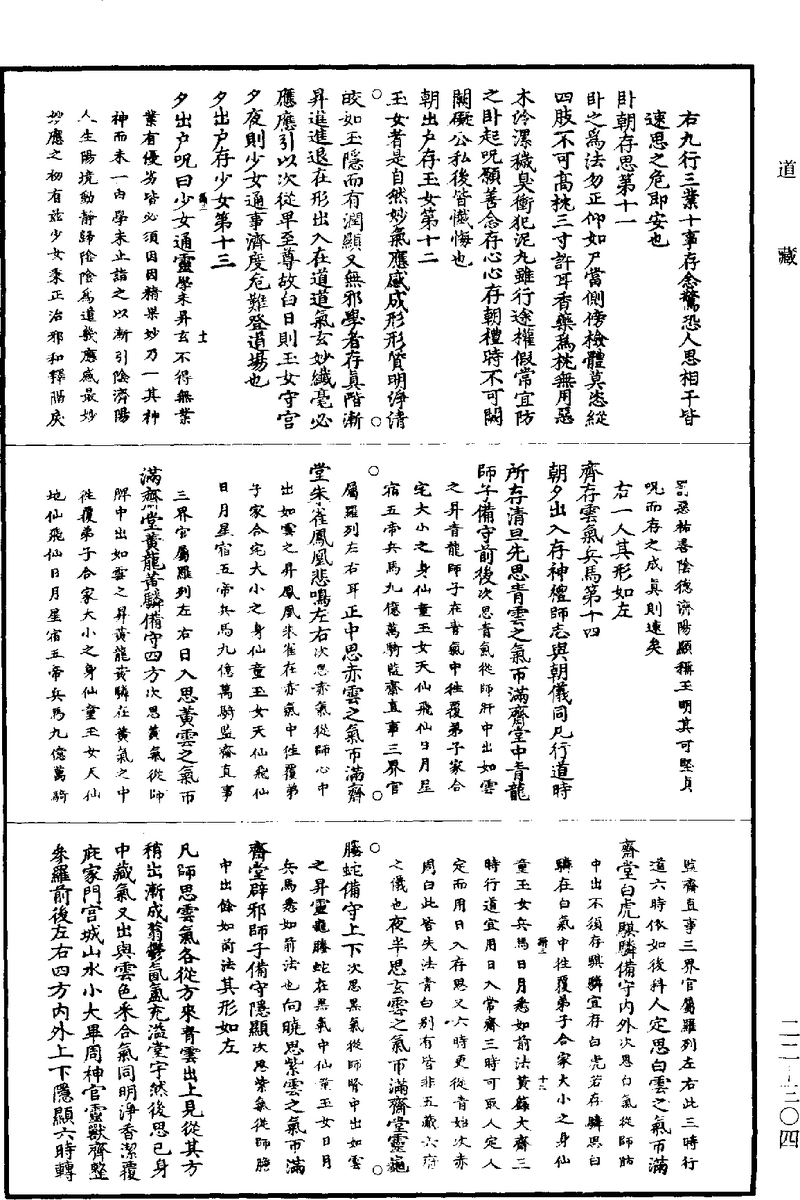 道藏
右九行三業十事存念驚恐人思相干皆
速思之危即安也
卧朝存思第十一
卧之為法勿正仰如尸當側傍檢體莫恣縱
四肢不可高枕三寸許耳香藥為枕無用惡
木冷漯穢臭衝犯泥丸雖行途權假常宜防
之卧起呪願善念存心心存朝禮時不可闕
闕礙公私後皆懺悔也
朝出户存玉女第十二
玉女者是自然妙氣應感成形形質明淨清
皎如玉隱而有潤顯又無邪學者存真階漸
昇進進退在形出入在道道氣玄妙纖毫必
應應引以次從卑至尊故白日則玉女守宫
夕夜則少女通事濟度危難登道場也
夕出户存少女第十三
夕出户呪曰少女通靈學未昇玄不得無業
業有優劣皆必須因因精果妙乃一其神
神而未一由學未止詣之以漸引陰濟陽
人生陽境動静歸陰陰為道幾應感最妙
妙應之初有兹少女柔正治邪和釋陽戾
罰惡祐善陰德濟陽顯稱玉明其可堅貞
呪而存之成真則速矣
右一人其形如左
齊存雲氣兵馬第十四
朝夕出入存神禮師志與朝儀同凡行道時
所存清旦先思青雲之氣帀滿齊堂中青龍
師子備守前後次思青氣從師肝中出如雲
之昇青龍師子在青氣中往覆弟子家合
宅大小之身仙童玉女天仙飛仙日月星
宿五帝兵馬九億萬騎監齋直事三界官
屬羅列左右耳正中思赤雲之氣帀滿齊
堂朱雀鳳凰悲鳴左右次思赤氣從師心中
出如雲之昇鳳凰朱雀在赤氣中往覆弟
子家合宅大小之身仙童玉女天仙飛仙
日月星宿五帝兵馬九億萬騎監齋直事
三界官屬羅列左右日入思黄雲之氣帀
滿齋堂黄龍黄驎備守四方次思黄氣從師
脾中出如雲之昇黄龍黄驎在黄氣之中
往覆弟子合家大小之身仙童玉女天仙
地仙飛仙日月星宿五帝兵馬九億萬騎
監齋直事三界官屬羅列左右此三時行
道六時依如後科人定思白雲之氣帀滿
齋堂白虎騏驎備守内外次思白氣從師肺
中出不須存騏驎宜存白虎若存驎思白
驎在白氣中往覆弟子合家大小之身仙
童玉女兵馬日月悉如前法黄籙大齋三
時行道宜用日入常齋三時可取人定人
定而用日入存思又六時更從青始次赤
周白此皆失法青白别有皆非五藏六府
之儀也夜半思玄雲之氣帀滿齋堂靈龜
螣蛇備守上下次思黑氣從師腎中出如雲
之昇靈龜螣蛇在黑氣中仙童玉女日月
兵馬悉如前法也向曉思紫雲之氣帀滿
齋堂辟邪師子備守隱顯次思紫氣從師膽
中出餘如前法其形如左
凡師思雲氣各從方來青雲出上見從其方
稍出漸成蓊鬱氤氳充溢堂宇然後思已身
中藏氣又出與雲色来合氣同明淨香潔覆
庇家門宫城山水小大畢周神官靈獸齊整
參羅前後左右四方内外上下隱顯六時轉
二二—三〇四